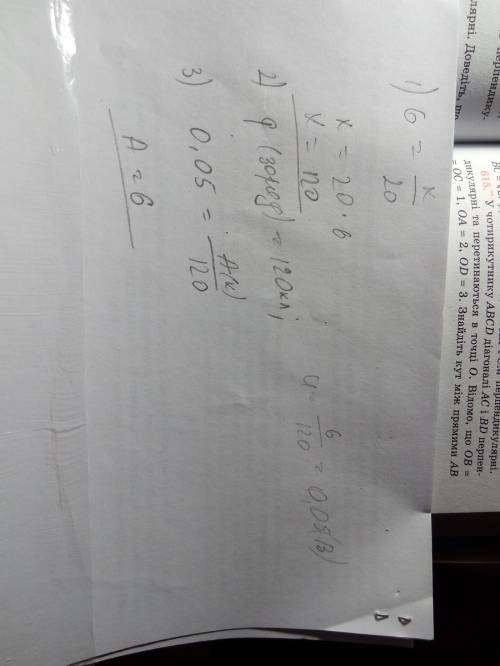 1) 6 = x/20
x = 20·6
x = 120
2) q (заряд) = 120 кл;
u = 6/120 = 0,05(В)
3) 0,05 = A(x)/120
A = 6
перпендику-
лярні. Доведіть, що
перпендикулярні.
615.** У чотирикутнику ABCD діагоналі AC і BD перпен-
дикулярні та перетинаються в точці O. Відомо, що OB =
= OC = 1, OA = 2, OD = 3. Знайдіть кут між прямими AB